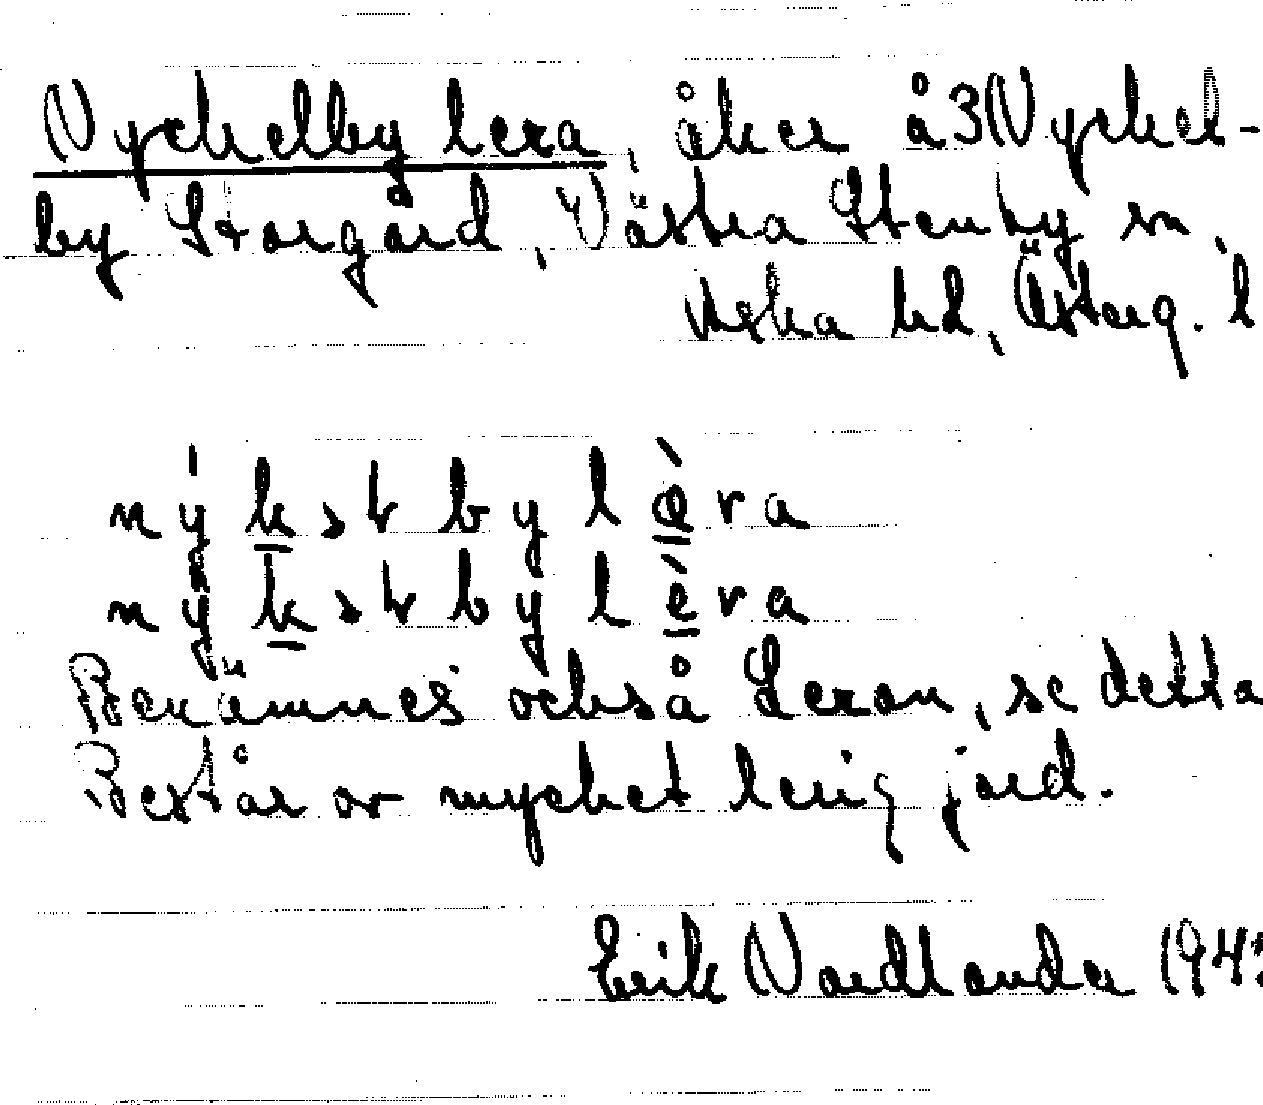 Nyckelby lera, åker å 3 Nyckel-
by Storgård, Västra Stenby sn,
Aska hd, Österg. l
nýkstbylèra
nýkstbylèra
Benämnes också Leran, se detta
Består av mycket lerig jord.
Erik Nordlander 194